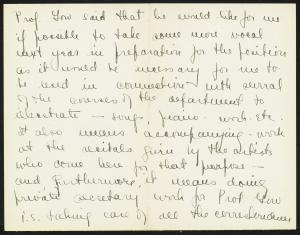 Prof Gow said that he would like for me
if possible to take some more vocal
next year in preparation for the position
as it would be necessary for me to
be used in connection with several
of the courses of the department to
illustrate – song, piano - work. etc.
It also means accompanying - work
at the recitals given by the artists
who come here for that purpose –
and furthermore, it means doing
private secretary work for Prof Gow
i.e. taking care of all the correspondence